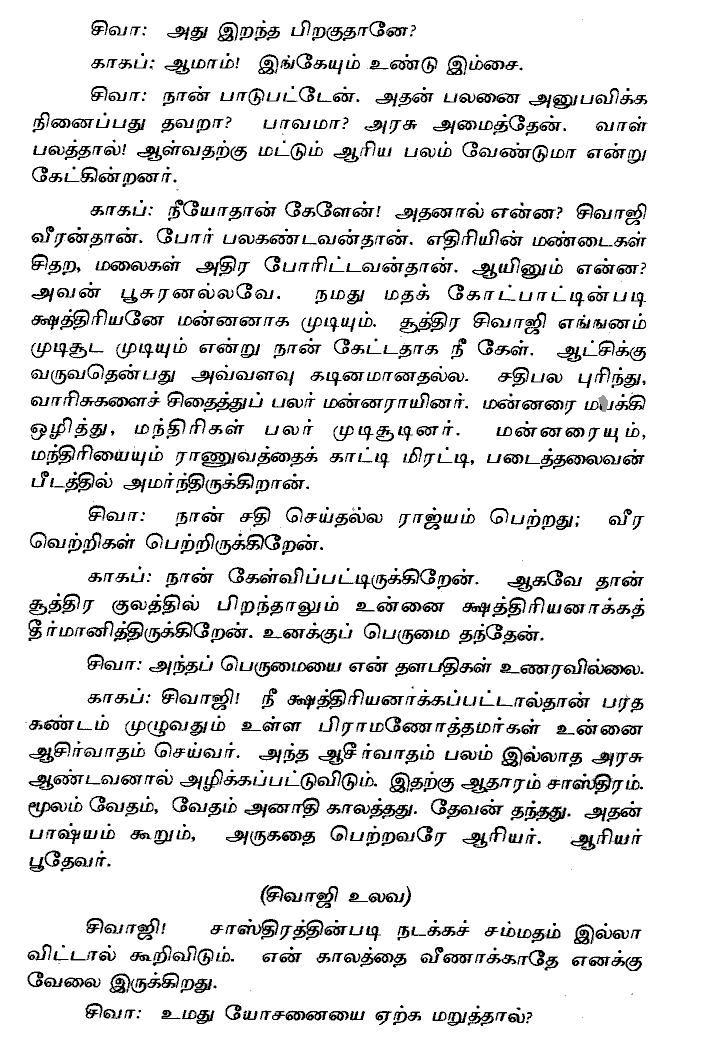 சிவா: அது இறந்த பிறகுதானே?
காகப்: ஆமாம்! இங்கேயும் உண்டு இம்சை.
சிவா: நான் பாடுபட்டேன். அதன் பலனை அனுபவிக்க
நினைப்பது தவறா? பாவமா? அரசு அமைத்தேன். வாள்
பலத்தால்! ஆள்வதற்கு மட்டும் ஆரிய பலம் வேண்டுமா என்று
கேட்கின்றனர்.
காகப்: நீயோதான் கேளேன்! அதனால் என்ன? சிவாஜி
வீரன்தான். போர் பலகண்டவன்தான். எதிரியின் மண்டைகள்
சிதற, மலைகள் அதிர போரிட்டவன்தான். ஆயினும் என்ன?
அவன் பூசுரனல்லவே. நமது மதக் கோட்பாட்டின்படி
க்ஷத்திரியனே மன்னனாக முடியும். சூத்திர சிவாஜி எங்ஙனம்
முடிசூட முடியும் என்று நான் கேட்டதாக நீ கேள். ஆட்சிக்கு
வருவதென்பது அவ்வளவு கடினமானதல்ல. சதிபல புரிந்து,
வாரிசுகளைச் சிதைத்துப் பலர் மன்னராயினர். மன்னரை மயக்கி
ஒழித்து, மந்திரிகள் பலர் முடிசூடினர். மன்னரையும்,
மந்திரியையும் ராணுவத்தைக் காட்டி மிரட்டி, படைத்தலைவன்
பீடத்தில் அமர்ந்திருக்கிறான்.
சிவா: நான் சதி செய்தல்ல ராஜ்யம் பெற்றது; வீர
வெற்றிகள் பெற்றிருக்கிறேன்.
காகப்: நான் கேள்விப்பட்டிருக்கிறேன். ஆகவே தான்
சூத்திர குலத்தில் பிறந்தாலும் உன்னை க்ஷத்திரியனாக்கத்
தீர்மானித்திருக்கிறேன். உனக்குப் பெருமை தந்தேன்.
சிவா: அந்தப் பெருமையை என் தளபதிகள் உணரவில்லை.
காகப்: சிவாஜி! நீ க்ஷத்திரியனாக்கப்பட்டால்தான் பரத
கண்டம் முழுவதும் உள்ள பிராமணோத்தமர்கள் உன்னை
ஆசிர்வாதம் செய்வர். அந்த ஆசீர்வாதம் பலம் இல்லாத அரசு
ஆண்டவனால் அழிக்கப்பட்டுவிடும். இதற்கு ஆதாரம் சாஸ்திரம்.
மூலம் வேதம், வேதம் அனாதி காலத்தது. தேவன் தந்தது. அதன்
பாஷ்யம் கூறும், அருகதை பெற்றவரே ஆரியர். ஆரியர்
பூதேவர்.
(சிவாஜி உலவ)
சிவாஜி! சாஸ்திரத்தின்படி நடக்கச் சம்மதம் இல்லா
விட்டால் கூறிவிடும். என் காலத்தை வீணாக்காதே எனக்கு
வேலை இருக்கிறது.
சிவா: உமது யோசனையை ஏற்க மறுத்தால்?